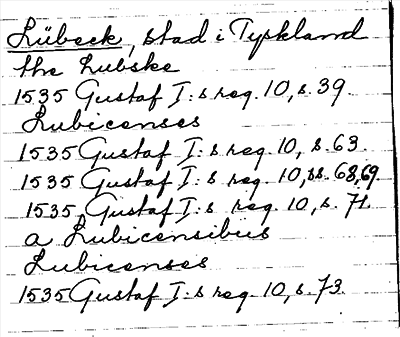 Lübeck, stad i Tyskland
the Lubske
1535 Gustaf I:s reg. 10, s. 39.
Lubicenses
1535 Gustaf I:s reg. 10, s. 63.
1535 Gustaf I:s reg. 10, ss. 68, 69.
1535, Gustaf I:s reg. 10, s. 71.
a Lubicensibus
Lubicenses
1535 Gustaf I:s reg. 10, s. 73.